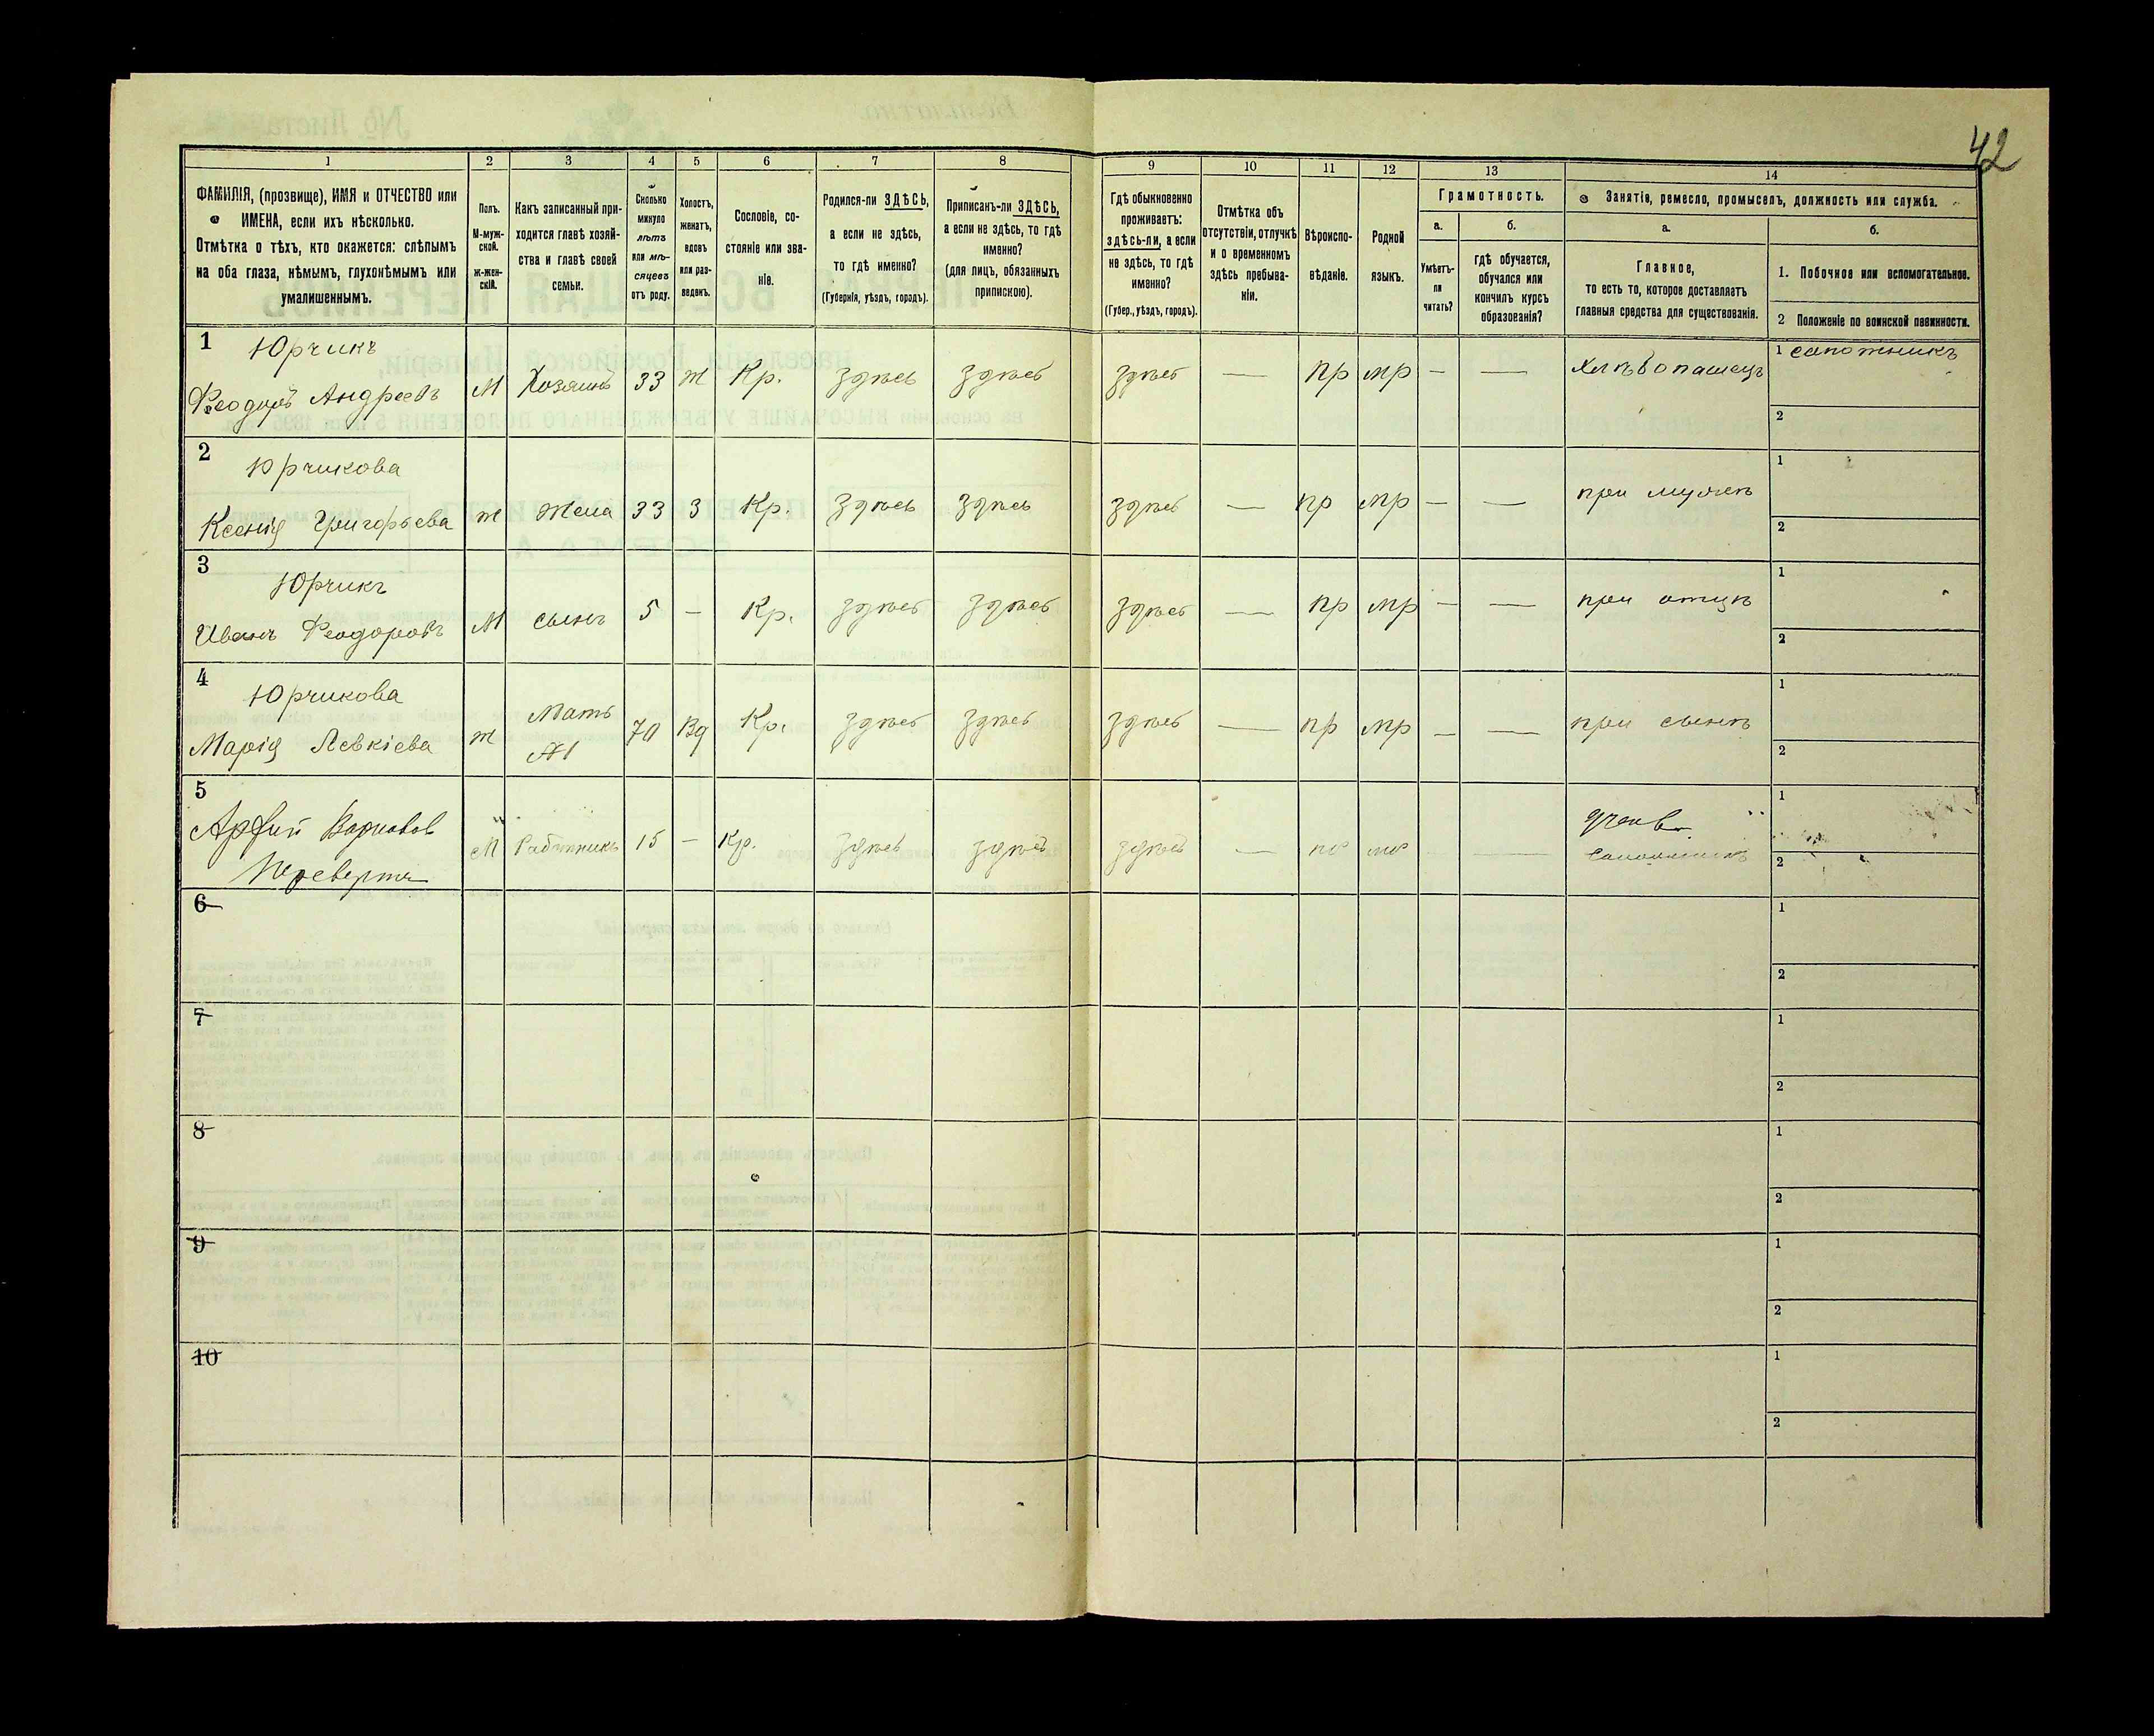 42
1 2 3 4 5 6 7 8 9 10 11 12 13 14
ФАМИЛІЯ, (прозвище), ИМЯ и ОТЧЕСТВО или
ИМЕНА, если ихъ нѣсколько.
Отмѣтка о тѣхъ, кто окажется: слѣпымъ
на оба глаза, нѣмымъ, глухонѣмымъ или
умалишеннымъ.
Полъ.
М-муж-
ской.
ж-жен-
скій.
Какъ записанный при-
ходится главѣ хозяй-
ства и главѣ своей
семьи.
Сколько
минуло
лѣтъ
или мѣ-
сяцевъ
отъ роду.
Холостъ,
женатъ,
вдовъ
или раз-
веденъ.
Сословіе, со-
стояніе или зва-
ніе.
Родился-ли ЗДѢСЬ,
а если не здѣсь,
то гдѣ именно?
(Губернія, уѣздъ, городъ).
Приписанъ-ли ЗДѢСЬ,
а если не здѣсь, то гдѣ
именно?
(для лицъ, обязанныхъ
припискою).
Гдѣ обыкновенно
проживаетъ:
здѣсь-ли, а если
не здѣсь, то гдѣ
именно?
(Губер., уѣздъ, городъ).
Отмѣтка объ
отсутствіи, отлучкѣ
и о временномъ
здѣсь пребыва-
ніи.
Вѣроиспо-
вѣданіе.
Родной
языкъ.
Грамотность.
а.
Умѣетъ-
ли
читать?
б.
гдѣ обучается,
обучался или
кончилъ курсъ
образованія?
Занятіе, ремесло, промыселъ, должность или служба.
а.
Главное,
то есть то, которое доставляетъ
главныя средства для существованія.
б.
1. Побочное или вспомогательное.
2 Положеніе по воинской повинности.
1 Юрчикъ
Феодоръ Андреевъ М Хозяинъ 33 Ж Кр. здѣсь здѣсь здѣсь — пр мр — — Хлѣбопашецъ 1 сапожникъ
2
2 Юрчикова 1
Ксенія Григорьева ж Жена 33 З Кр. здѣсь здѣсь здѣсь — пр мр — — при мужѣ
2
3 Юрчикъ 1
Иванъ Феодоровъ М сынъ 5 — Кр. здѣсь здѣсь здѣсь — пр мр — — при отцѣ
2
4 Юрчикова 1
Марія Левкіева ж Мать 70 Вд Кр. здѣсь здѣсь здѣсь — пр мр — — при сынѣ
М1 2
5 1
М Работникъ 15 — Кр. здѣсь здѣсь здѣсь — пр мр —
Переверть 2
6 1
2
7 1
2
8 1
2
9 1
2
10 1
2